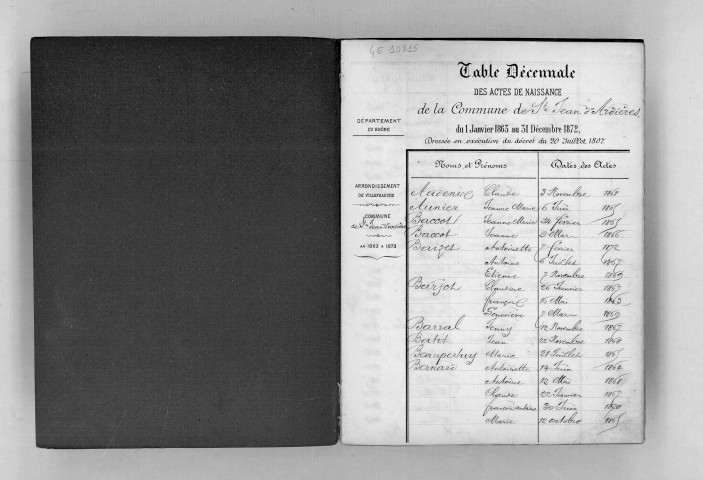 4E 10815
Table Décennale
DES ACTES DE NAISSANCE
de la Commune de St Jean d'Ardières,
du 1 Janvier 1863 au 31 Décembre 1872,
Dressée en exécution du décret du 20 Juillet 1807.
DÉPARTEMENT
DU RHÔNE
ARRONDISSEMENT
DE VILLEFRANCHE
COMMUNE
de St Jean d'Ardières
AN 1863 A 1873
Noms et Prénoms Dates des Actes
Claude 3 Novembre 1868
Aunier Jeanne Marie 6 Juin 1865
Baccot Jeanne Marie 24 février 1865
Baccot Jeanne 2 Mai 1866
Antoinette 7 février 1872
Antoine 6 Juillet 1867
Etienne 7 Novembre 1869
Berjot Claudine 26 Janvier 1867
françois 15 Mai 1863
Genevieve 7 Mars 1869
Barral Jenny 12 Novembre 1867
Jean 22 Novembre 1868
Beaupertuy Marie 21 Juillet 1865
Bernard Antoinette 14 Juin 1864
Antoine 12 Mai 1868
Claude 22 Janvier 1867
30 Juin 1870
Marie 12 octobre 1865